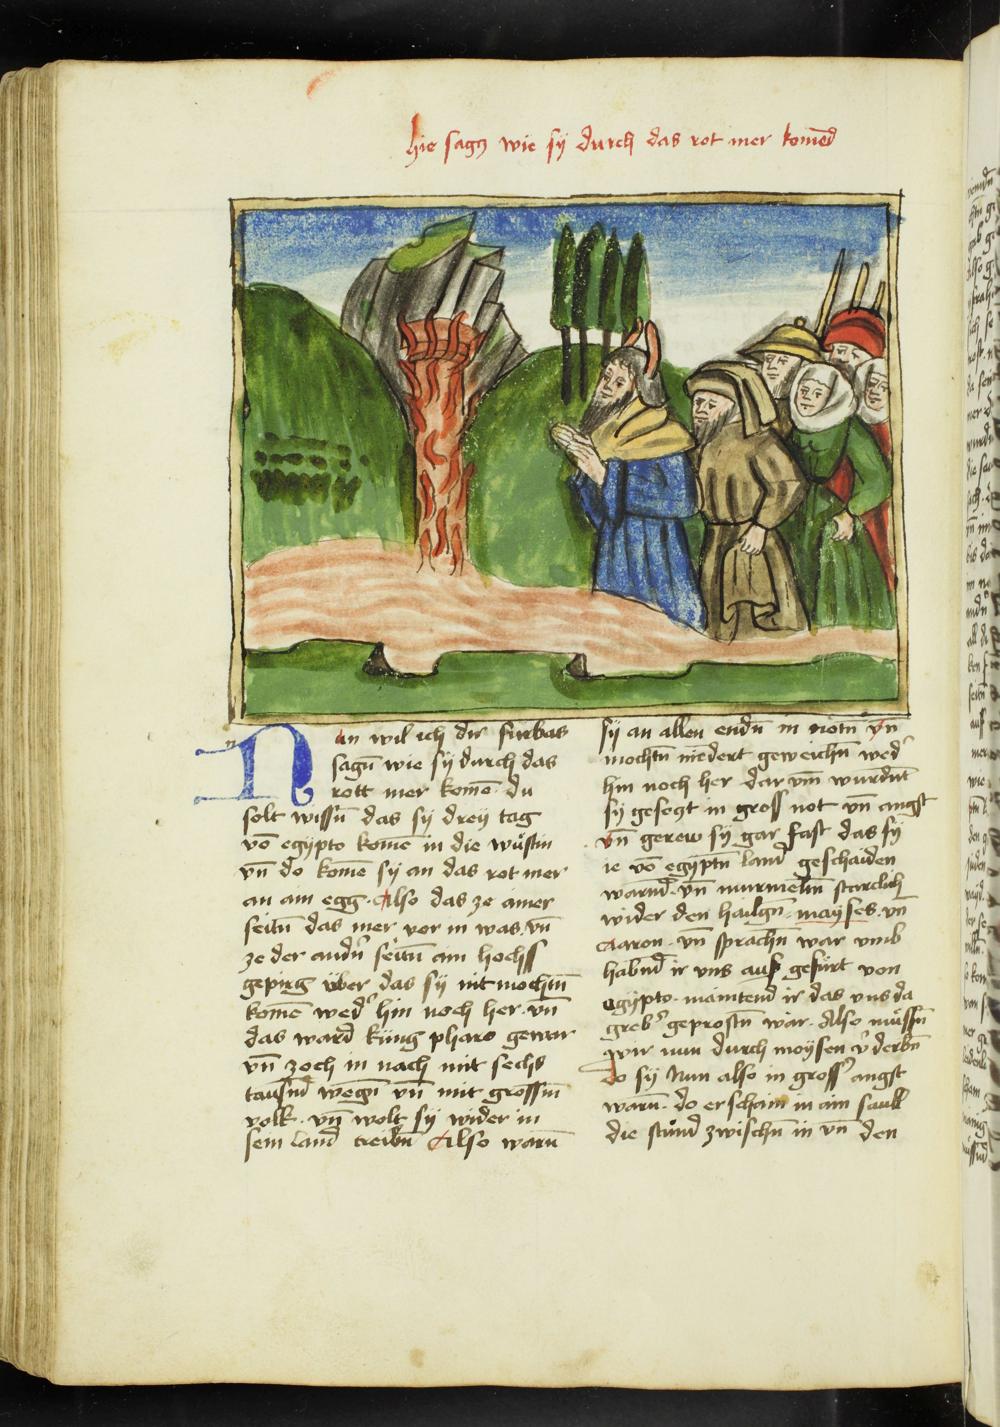 hie sagn wie sy durch das rot mer komēd
Nun wil ich dir furbas
sagñ wie sy durch das
rott mer komē · du
solt wissñ das sy drey tag
vō egypto komē in die wüstin
vn̄ do komē sy an das rot mer
an ain egg · Also das ze ainer
seitñ das mer vor in was · vn̄
ze der andñ seitñ ain hochs
gepirg über das sy nit mochtñ
komē wed' hin noch her · vn̄
das ward küng pharo gewar
vn̄ zoch in nach mit sechs
tausñd wegñ vn̄ mit grossm̄
volk · vn̄ wolt sy wider in
sein land treibñ Also warñ
sy an allen endñ in nötñ vn̄
mochtñ niedert geweichñ wed'
hin noch her dar vm̄ wurdnt
sy gesegt in gross not vn̄ angst
vn̄ gerew sy gar fast das sy
ie vō egyptñ land geschaiden
warnd · vn̄ murmeltñ starclich
wider den hailgñ · mayses · vn̄
aaron · vn̄ sprachñ war umb
habnd ir vns aus gefürt von
egypto · maintend ir das vns da
greb' geprostñ wär · Also müssñ
wir nun durch moysen v'derbñ
do sy Nun also in gross' angst
warñ · do erschain in ain saull
die stund zwischñ in vn̄ den